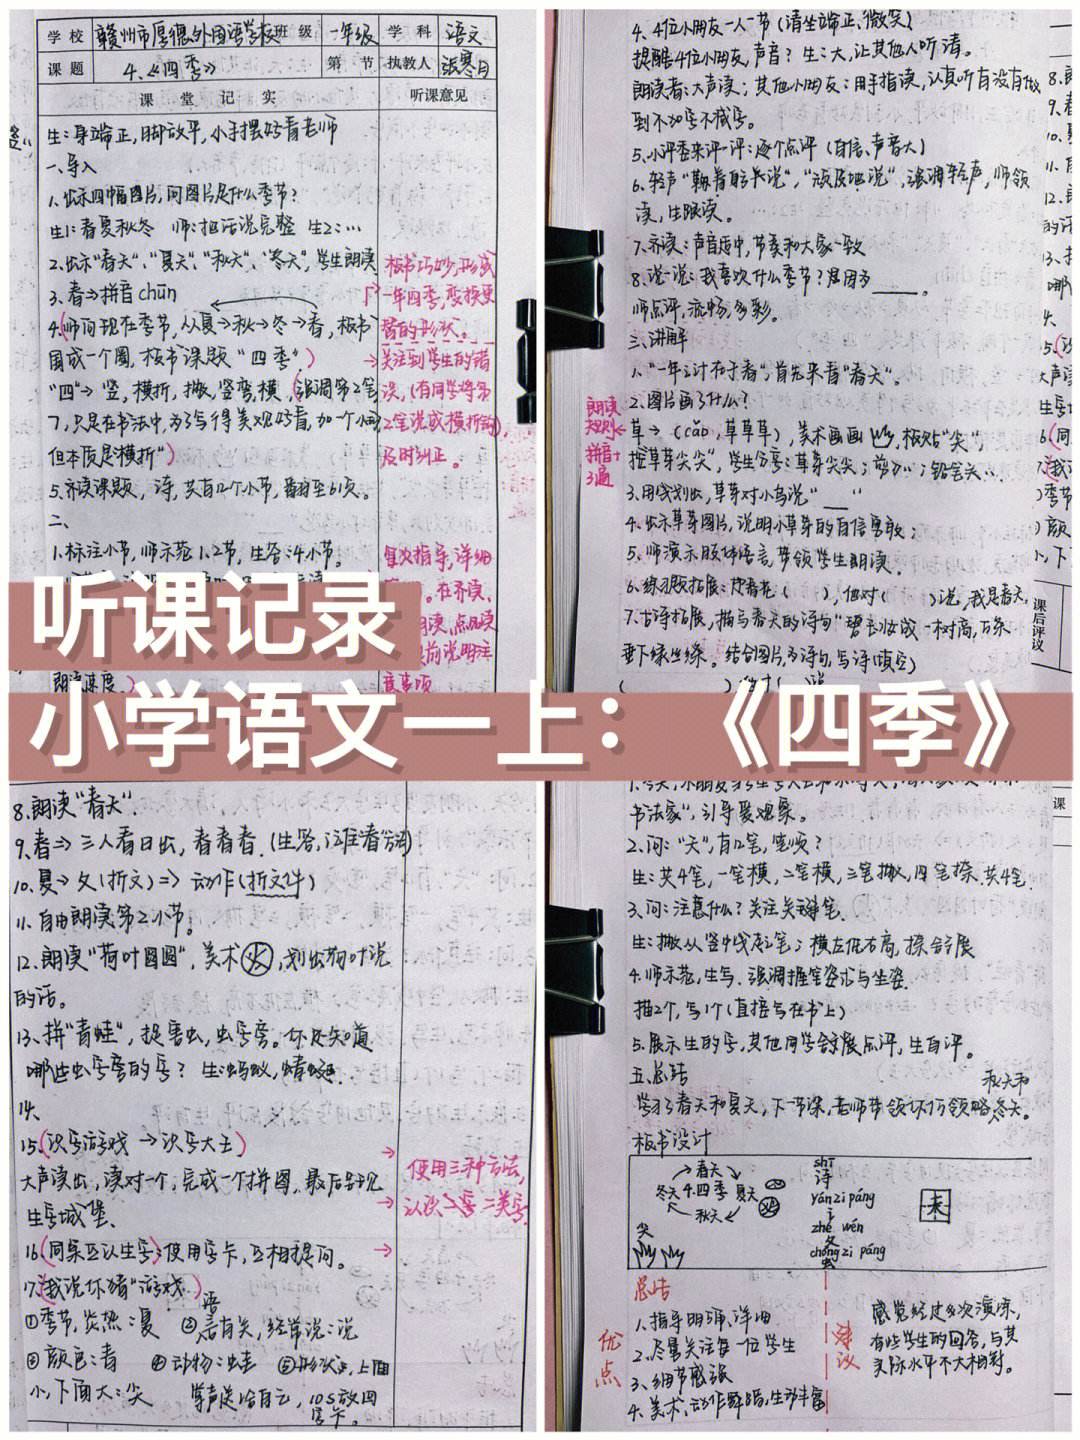 学校 赣州市厚德外国语学校 班级 一年级 学科 语文
课题 4、《四季》 第 节 执教人
课堂记实 听课意见
生:身端正,脚放平,小手摆好看老师
一、导入
1.出示四幅图片,问图片是什么季节?
生1:春夏秋冬 师:把话说完整 生2:…
2.出示“春天”、“夏天”、“秋天”、“冬天”,学生朗读
3.春⇒拼音chūn
4.(师问现在季节,从夏→秋→冬→春,板书
围成一个圈,板书课题“四季”)
“四”→竖,横折,撇,竖弯,横,(强调第2笔
7,只是在书法中,为了写得美观好看,加一个小
但本质是横折”)
5.齐读课题,诗,共有几个小节,翻到至61页。
板书巧妙,形成
一年四季,变换更
替的形状。
关注到学生的错
误,(有同学将第
2笔说成横折钩),
及时纠正。
二、
1.标注小节,师示范1.2节,生答:4小节。
每次指导,详细
在齐读、
朗读,点名读
前说明注
意事项
朗读速度。)
4、4位小朋友一人一节(请坐端正、微笑)
提醒4位小朋友,声音?生:大,让其他人听清。
朗读者:大声读;其他小朋友:用手指读,认真听有没有做
到不加字不减字。
5.小评委来评一评:逐个点评(自信、声音大)
6.轻声“鞠着躬说”,“顽皮地说”,强调轻声,师领
读,生跟读。
7.齐读:声音适中,节奏和大家一致
8.说一说:我喜欢什么季节?是因为____。
师点评,流畅,多彩。
三、讲解
1.“一年之计在于春”,首先来看“春天”。
2.图片画了什么?
草→(cǎo,草草草),美术画画,板贴“尖”,
“草芽尖尖”,学生仿写:草芽尖尖;铅笔尖…
朗读
规则
拼音+
3遍
3.用线划出,草芽对小鸟说“ ”
4.出示草芽图片,说明小草芽的自信勇敢
5.师演示肢体语言,带领学生朗读.
6.练习题拓展:( ),他对( )说,我是春天,
7.古诗拓展,描写春天的诗句“碧玉妆成一树高,万条
垂下绿丝绦。结合图片,为诗句,写诗(填空)
课后评议
听课记录
小学语文一上:《四季》
8.朗读“春天”.
9.春⇒三人看日出,春春春.(生答,注重看方法)
10.夏→夂(折文)⇒动作(折文件)
11.自由朗读第2小节。
12.朗读“荷叶圆圆”,美术,划出荷叶说
的话。
13.拼“青蛙”,捉害虫,虫字旁。你还知道
哪些虫字旁的字?生:蚂蚁,蜻蜓.
14.
15.(识字游戏→识字大王)
大声读出,读对一个,完成一个拼图,最后呈现
生字城堡.
使用三种方法,
认识二类字.
16.(同桌互认生字:)使用字卡,互相提问。
17.(“我说你猜”游戏.)
①季节,炎热:夏 ②与语言有关,经常说:说
③颜色:青 ④动物:蛙 ⑤形状,上面
小,下面大:尖 掌声送给自己,10S放回
字卡.
书法家”,引导晨观察。
2.问:“天”,有几笔,笔顺?
生:共4笔,一笔横,二笔横,三笔撇,四笔捺.共4笔.
3.问:注意什么?关注关键笔.
生:撇从竖中线起笔;横左低右高,捺舒展
4.师示范,生写.强调握笔姿式与坐姿.
描2个,写1个(直接写在书上)
5.展示生的字,其他同学给予点评,生自评。
五.总结
秋天和
学习了春天和夏天,下一节课,老师带领你们领略冬天。
板书设计
春天
冬天 4.四季 夏天
秋天
尖
shī
诗
yánzìpáng
zhé wén
夂
chóng zì páng
虫
总结
优点
1.指导明确、详细
2.尽量关注每一位学生
3、细节感强
4.美术、动作舞蹈,生动丰富
建议
感觉经过多次演练,
有些学生的回答,与其
实际水平不大相符。